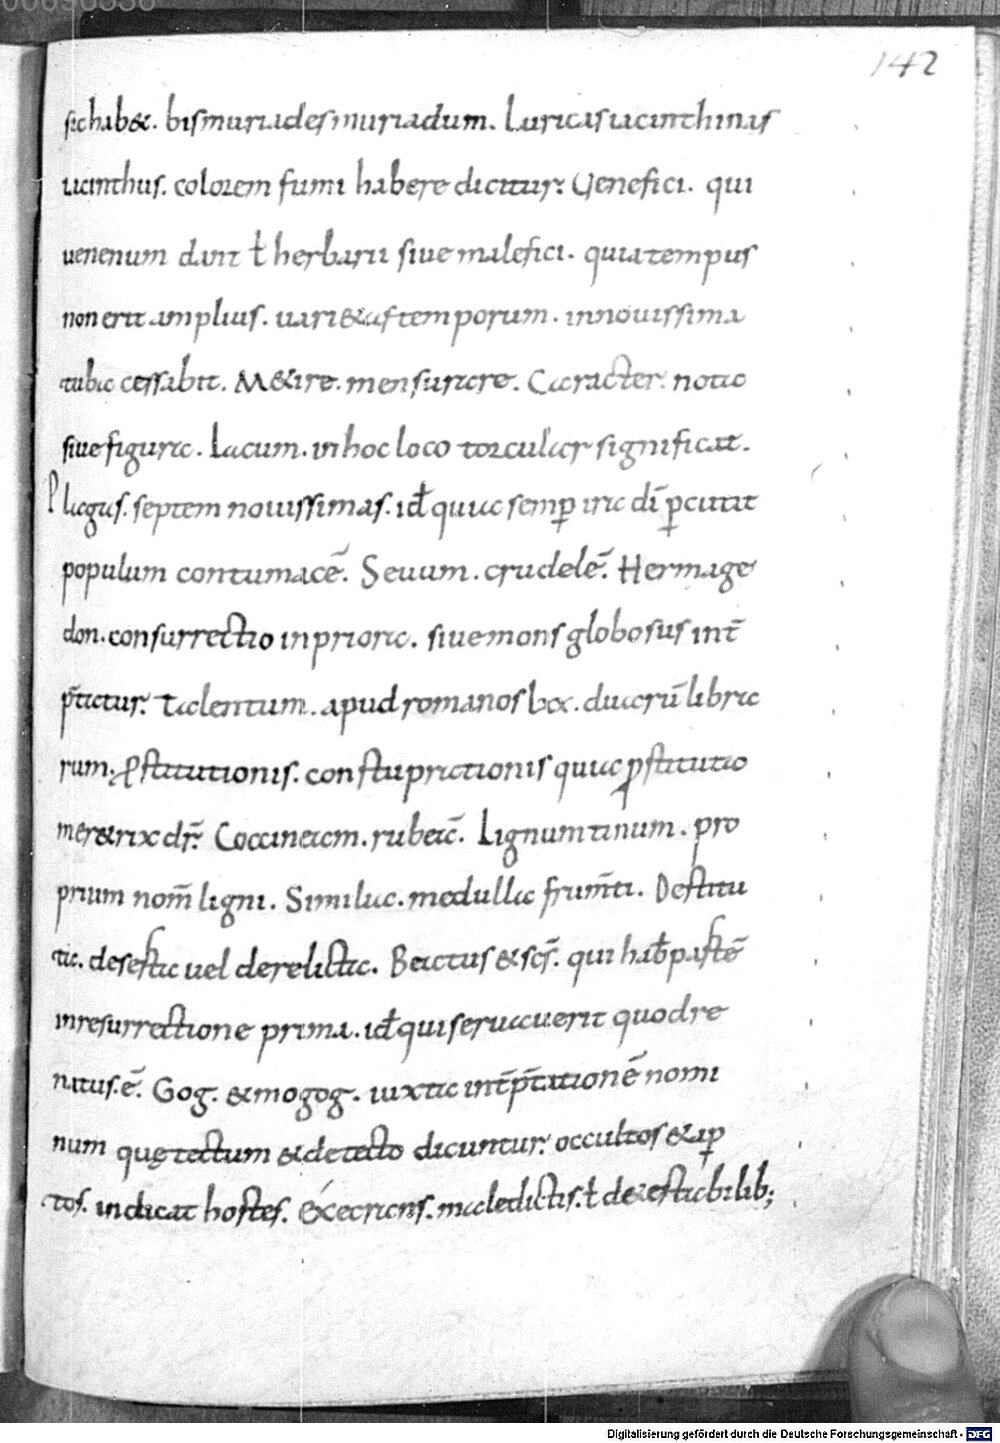 142
sic hab&. bis muriades muriadum. Luricas iacinthinas
iacinthus. colorem fumi habere dicitur. Venefici. qui
uenenum dant ł herbarii siue malefici. quia tempus
non erit amplius. uari&as temporum. in nouissima
tuba cessabit. M&ire. mensurare. Caracter. nota
siue figura. Lacum. in hoc loco torcular significat.
Plagas. septem nouissimas. id quia semp ira di pcutit
populum contumacē. Seuum. crudelē. Hermage
don. consurrectio in priora. siue mons globosus int
ptatur. Talentum. apud romanos lxx. duarū libra
rum. Prostitutionis. constuprationis quia prostituta
mer&rix dr. Coccineam. rubeā. Lignum tinum. pro
prium nom ligni. Simila. medulla frumti. Destitu
ta. deserta uel derelicta. Beatus & scs. qui hab partē
in resurrectione prima. id qui seruauerit quod re
natus. ē. Gog. & mogog. iuxta intptationē nomi
num quę tectum & detecto dicuntur. occultos & ap
tos. indicat hostes. Execrans. maledictis. ł de&estabilib;
Digitalisierung gefördert durch die Deutsche Forschungsgemeinschaft - DFG